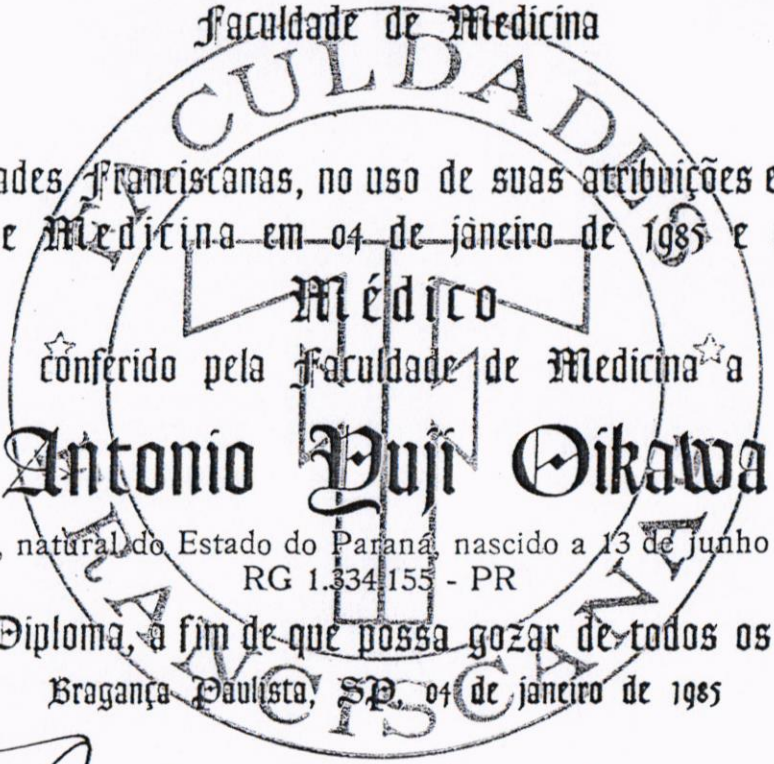 Faculdade de Medicina
FACULDADES
ades Franciscanas, no uso de suas atribuições e
e Medicina em 04 de janeiro de 1985 e
Médico
conferido pela Faculdade de Medicina a
Antonio Yuji Oikawa
, natural do Estado do Paraná, nascido a 13 de junho
RG 1.334.155 - PR
Diploma, a fim de que possa gozar de todos os
Bragança Paulista, SP, 04 de janeiro de 1985
FRANCISCANAS